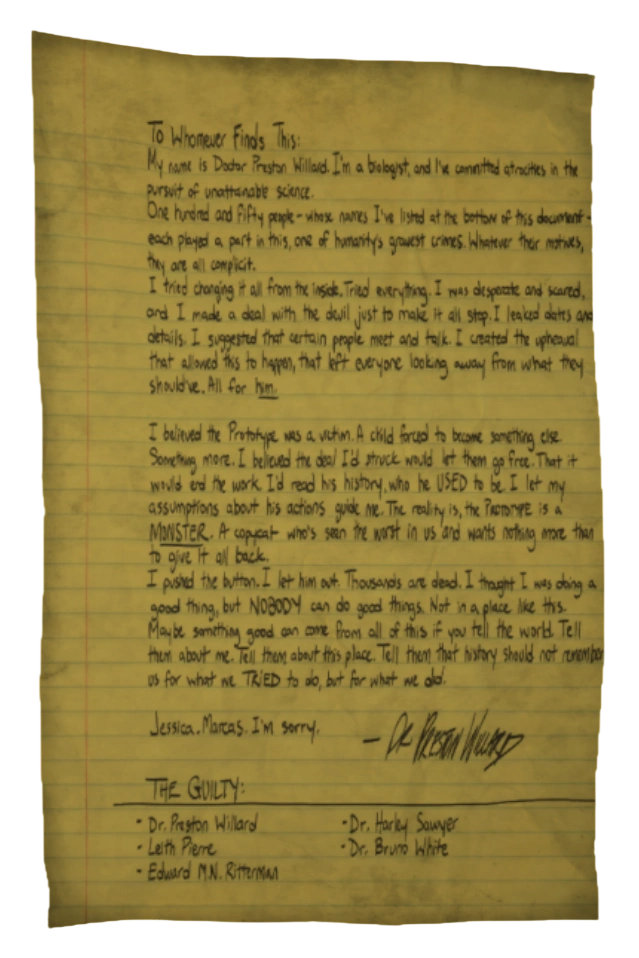 To Whomever Finds This:
My name is Doctor Preston Willard. I'm a biologist, and I've committed atrocities in the
pursuit of unattainable science.
One hundred and fifty people - whose names I've listed at the bottom of this document -
each played a part in this, one of humanity's gravest crimes. Whatever their motives,
they are all complicit.
I tried changing it all from the inside. Tried everything. I was desperate and scared,
and I made a deal with the devil just to make it all stop. I leaked dates and
details. I suggested that certain people meet and talk. I created the upheaval
that allowed this to happen, that left everyone looking away from what they
should've. All for him.
I believed the Prototype was a victim. A child forced to become something else.
Something more. I believed the deal I'd struck would let them go free. That it
would end the work. I'd read his history, who he USED to be. I let my
assumptions about his actions guide me. The reality is, the PROTOTYPE is a
MONSTER. A copycat who's seen the worst in us and wants nothing more than
to give it all back.
I pushed the button. I let him out. Thousands are dead. I thought I was doing a
good thing, but NOBODY can do good things. Not in a place like this.
Maybe something good can come from all of this if you tell the world. Tell
them about me. Tell them about this place. Tell them that history should not remember
us for what we TRIED to do, but for what we did.
Jessica. Marcas. I'm sorry. - Dr. Preston Willard
THE GUILTY:
- Dr. Preston Willard - Dr. Harley Sawyer
- Leith Pierre - Dr. Bruno White
- Edward M.N. Ritterman